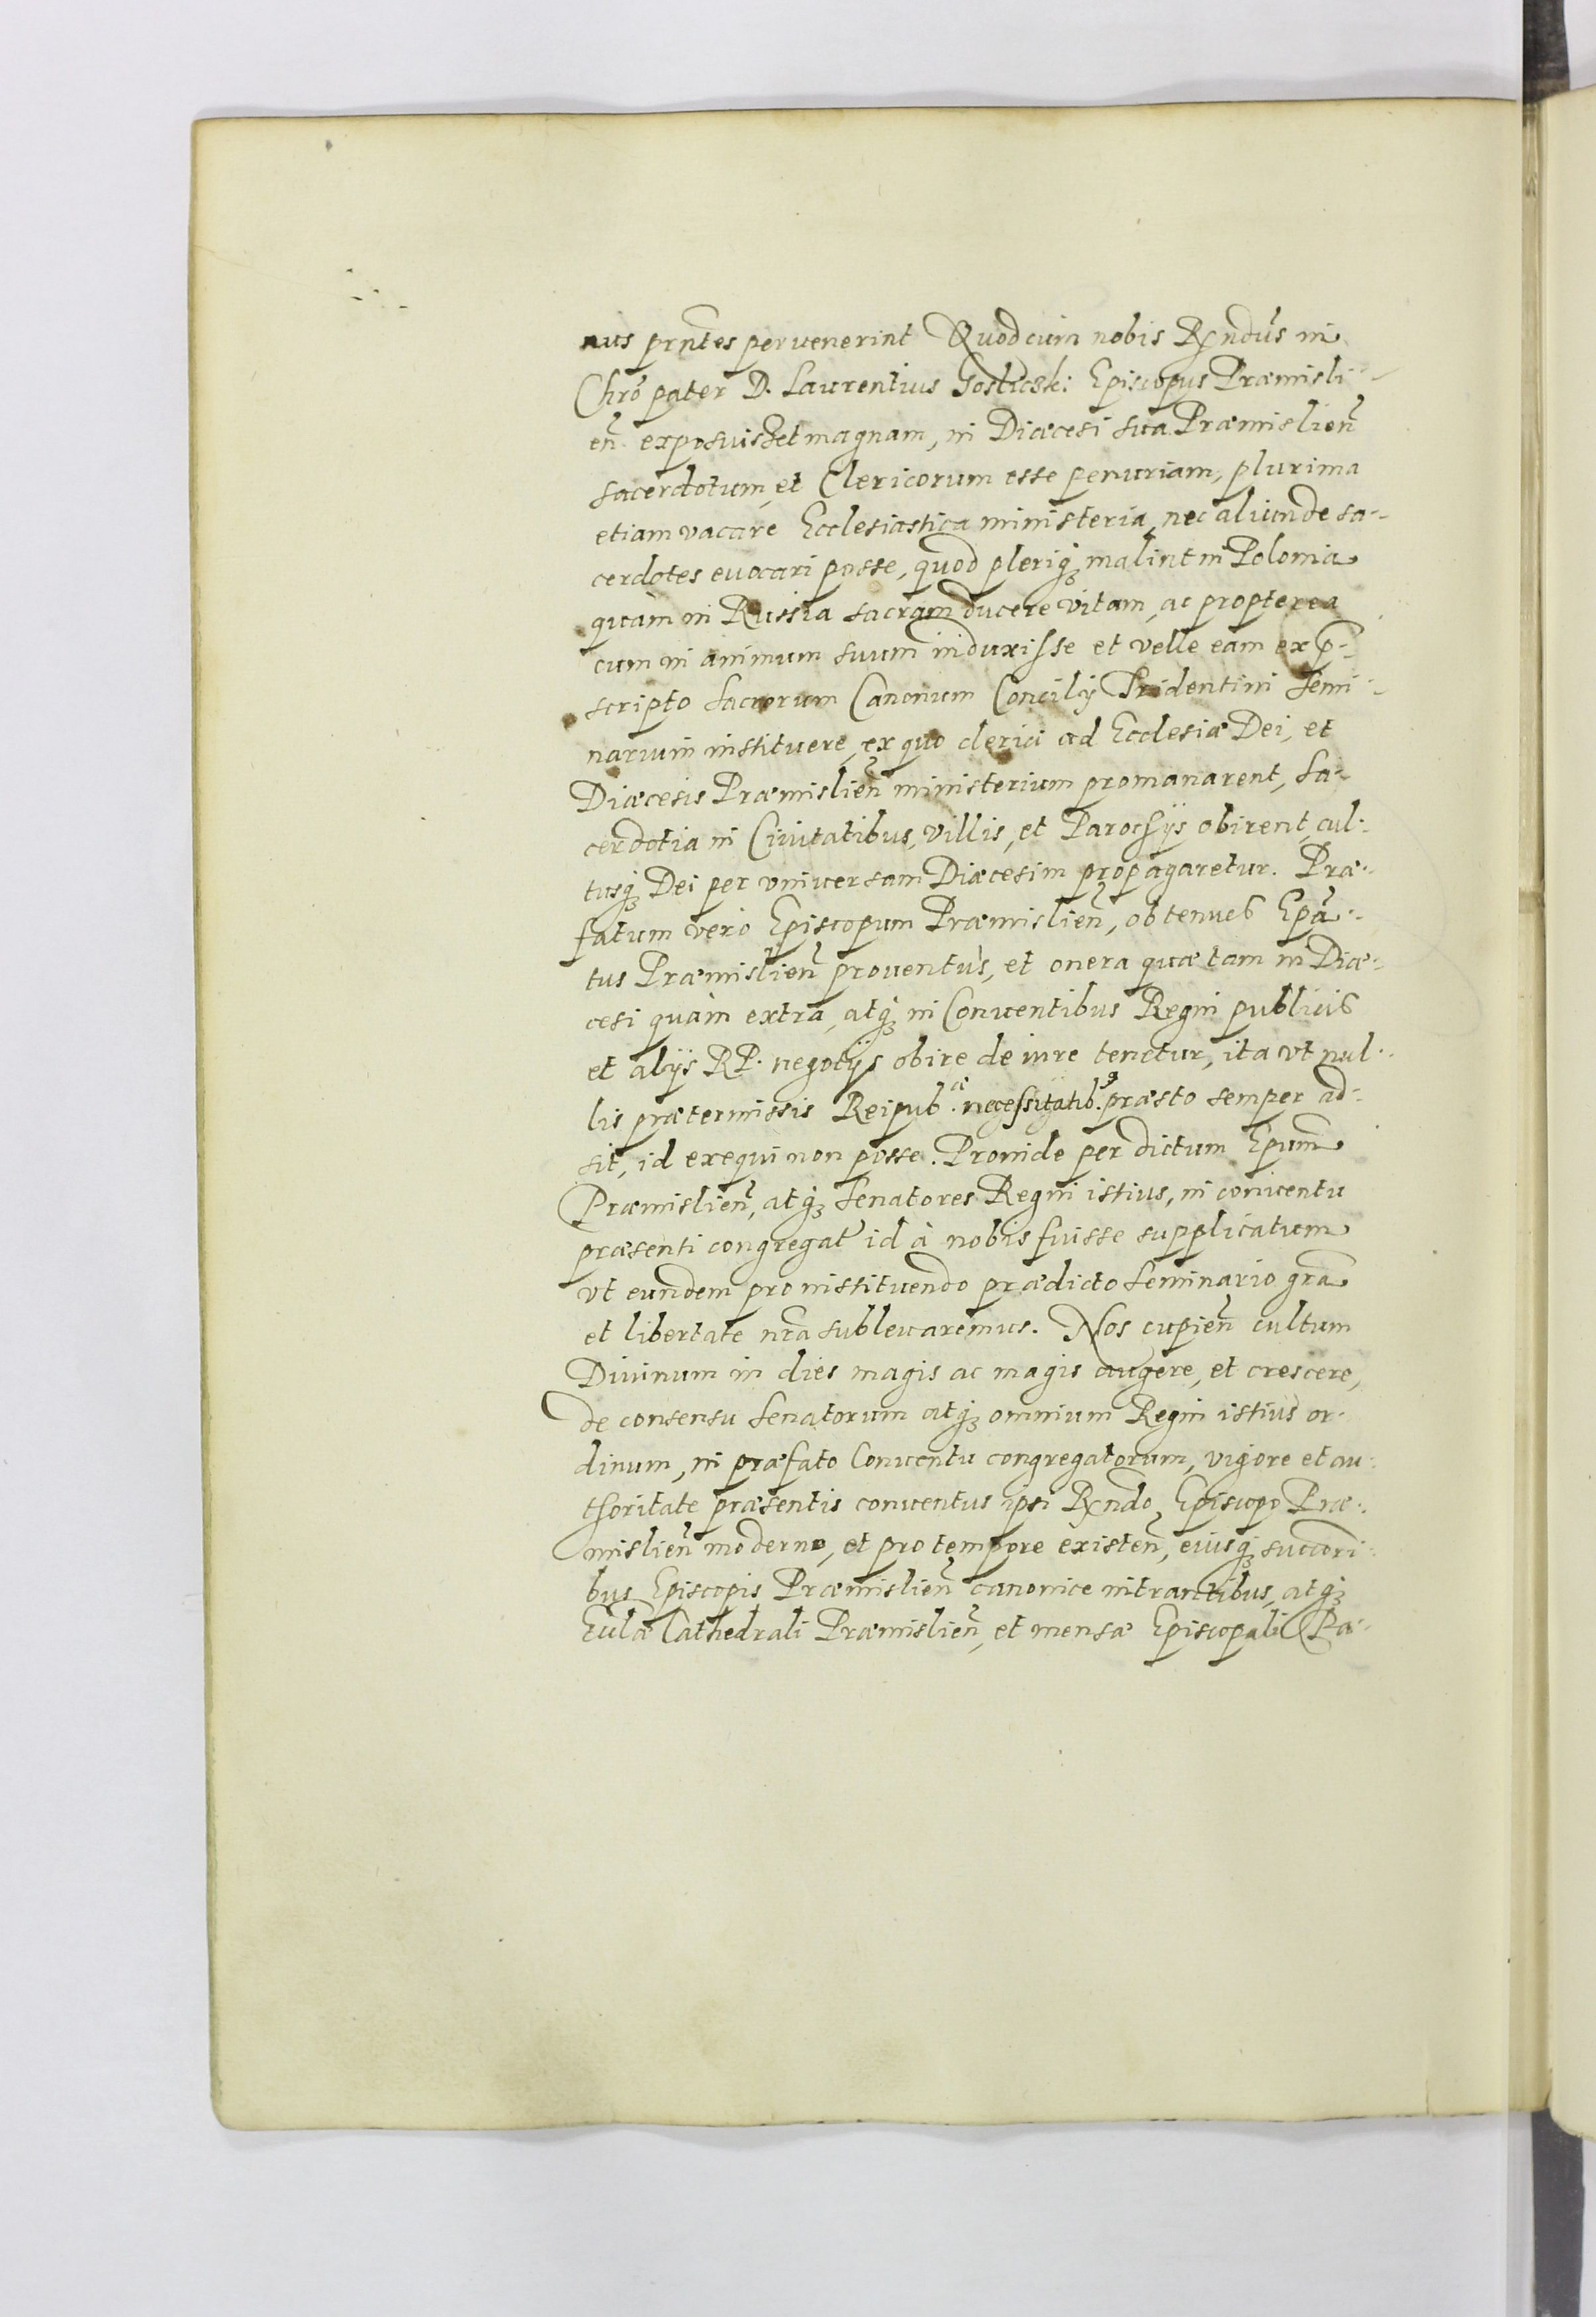 nus prñtes peruenerint Quod cum nobis Rx̃ndus in
Chrõ pater D. Laurentius Goslicski Episcopus Præmisli-
eñ exposuisset magnam, in Diæcesi sua Præmislieñ
sacerdotum, et Clericorum esse penuriam, plurima
etiam vacare Ecclesiastica ministeria, nec aliunde sa-
cerdotes euocari posse, quod pleriq₃ malint in Polonia
quàm in Russia sacram ducere vitam, ac propterea
cum in animum suum induxisse et velle eam ex p̃-
scripto sacrorum Canonum Concilij Tridentini Semi-
narium instituere, ex quo clerici ad Ecclesiæ Dei, et
Diæcesis Præmislieñ ministerium promanarent, Sa-
cerdotia in Ciuitatibus, villis, et Parochijs obirent, cul-
tusq₃ Dei per vniuersam Diæcesim propagaretur. Præ-
fatum verò Episcopum Præmislieñ, ob tenues Ep̃a-
tus Præmislieñ prouentus, et onera quæ tam in Diæ-
cesi quàm extra, atq₃ in Conuentibus Regni publicis
et alijs RP. negotijs obire de iure tenetur, ita vt nul-
lis prætermissis Reipub.æ necessitatib.9 præsto semper ad-
sit, id exequi non posse. Proinde per dictum Ep̃um
Præmislieñ, atq₃ Senatores Regni istius, in conuentu
præsenti congregat̃ id à nobis fuisse supplicatum
vt eundem pro instituendo prædicto Seminario gr̃a
et libertate nr̃a subleuaremus. Nos cupieñ cultum
Diuinum in dies magis ac magis augere, et crescere,
de consensu Senatorum atq₃ omnium Regni istius or-
dinum, in præfato Conuentu congregatorum, vigore et au-
thoritate præsentis conuentus ipsi Rx̃ndo Episcopo Præ-
mislieñ moderno, et pro tempore existeñ, eiusq₃ succõri-
bus Episcopis Præmislieñ canonice intrantibus, atq₃
Ecclæ Cathedrali Præmislieñ, et mensæ Episcopali Præ-